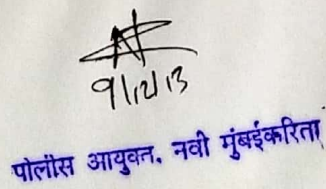 9/12/13
पोलीस आयुक्त, नवी मुंबईकरिता